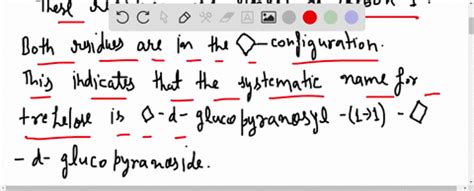 These re
Both residues are in the ◇-configuration.
This indicates that the systematic name for
trehelose is ◇-d-glucopyranosyl-(1→1)-◇
-d-glucopyranoside.